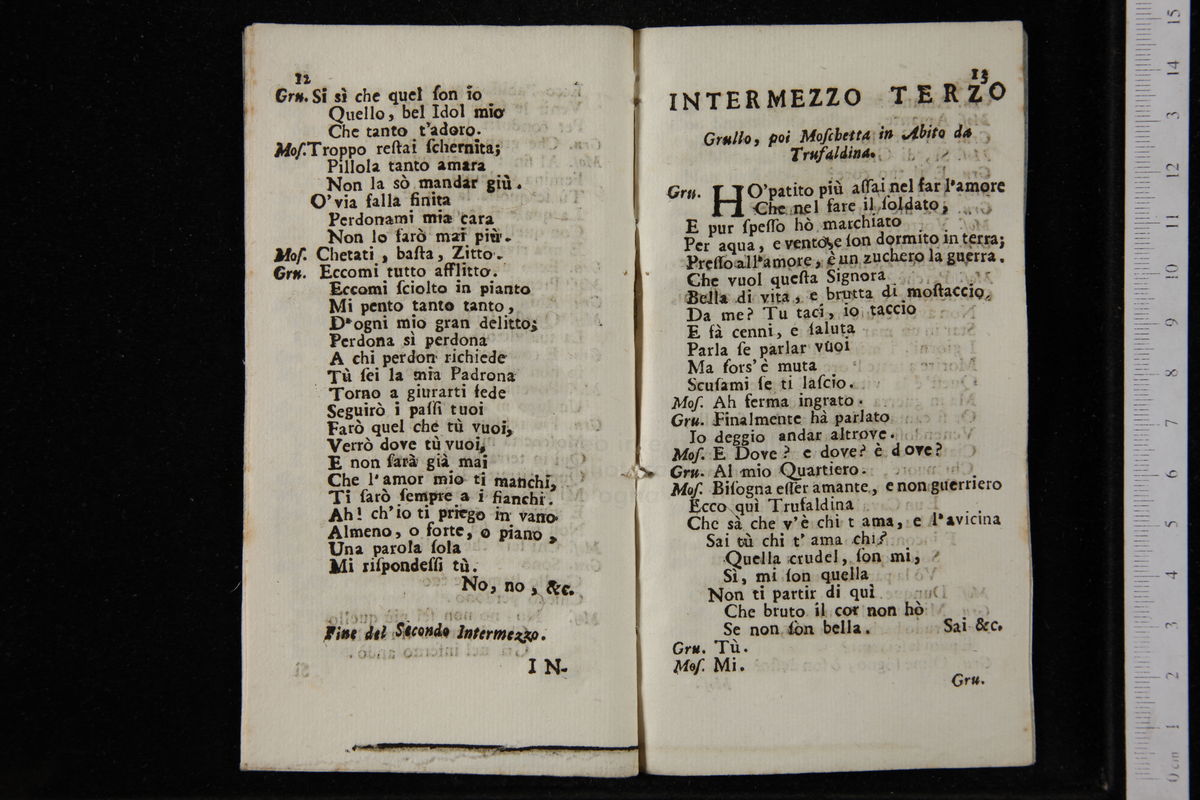 12
Gru. Si sì che quel ſon io
Quello, bel Idol mio
Che tanto t'adoro.
Moſ. Troppo reſtai ſchernita;
Pillola tanto amara
Non la sò mandar giù.
O'via falla finita
Perdonami mia cara
Non lo farò mai più.
Moſ. Chetati, baſta, Zitto.
Gru. Eccomi tutto afflitto.
Eccomi ſciolto in pianto
Mi pento tanto tanto,
D'ogni mio gran delitto;
Perdona sì perdona
A chi perdon richiede
Tù ſei la mia Padrona
Torno a giurarti fede
Seguirò i paſſi tuoi
Farò quel che tù vuoi,
Verrò dove tù vuoi,
E non ſarà già mai
Che l'amor mio ti manchi,
Ti ſarò ſempre a i fianchi.
Ah! ch'io ti priego in vano
Almeno, o forte, o piano,
Una parola ſola
Mi riſpondeſſi tù.
No, no, &c.
Fine del Secondo Intermezzo.
IN-
13
INTERMEZZO TERZO
Grullo, poi Moſchetta in Abito da
Trufaldina.
Gru. HO'patito più aſſai nel far l'amore
Che nel fare il ſoldato,
E pur ſpeſſo hò marchiato
Per aqua, e vento, e ſon dormito in terra;
Preſſo all'amore, è un zuchero la guerra.
Che vuol queſta Signora
Bella di vita, e brutta di moſtaccio,
Da me? Tu taci, io taccio
E fà cenni, e ſaluta
Parla ſe parlar vuoi
Ma fors'è muta
Scuſami ſe ti laſcio.
Moſ. Ah ferma ingrato.
Gru. Finalmente hà parlato
Io deggio andar altrove.
Moſ. E Dove? e dove? è dove?
Gru. Al mio Quartiero.
Moſ. Biſogna eſſer amante, e non guerriero
Ecco quì Trufaldina
Che sà che v'è chi t ama, e l'avicina
Sai tù chi t' ama chi?
Quella crudel, ſon mi,
Sì, mi ſon quella
Non ti partir di quì
Che bruto il cor non hò
Se non ſon bella. Sai &c.
Gru. Tù.
Moſ. Mi.
Gru.